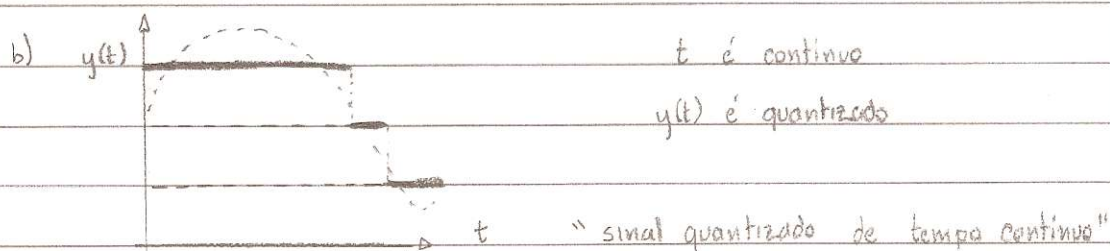 b) y(t) t é contínuo
y(t) é quantizado
t "sinal quantizado de tempo contínuo"